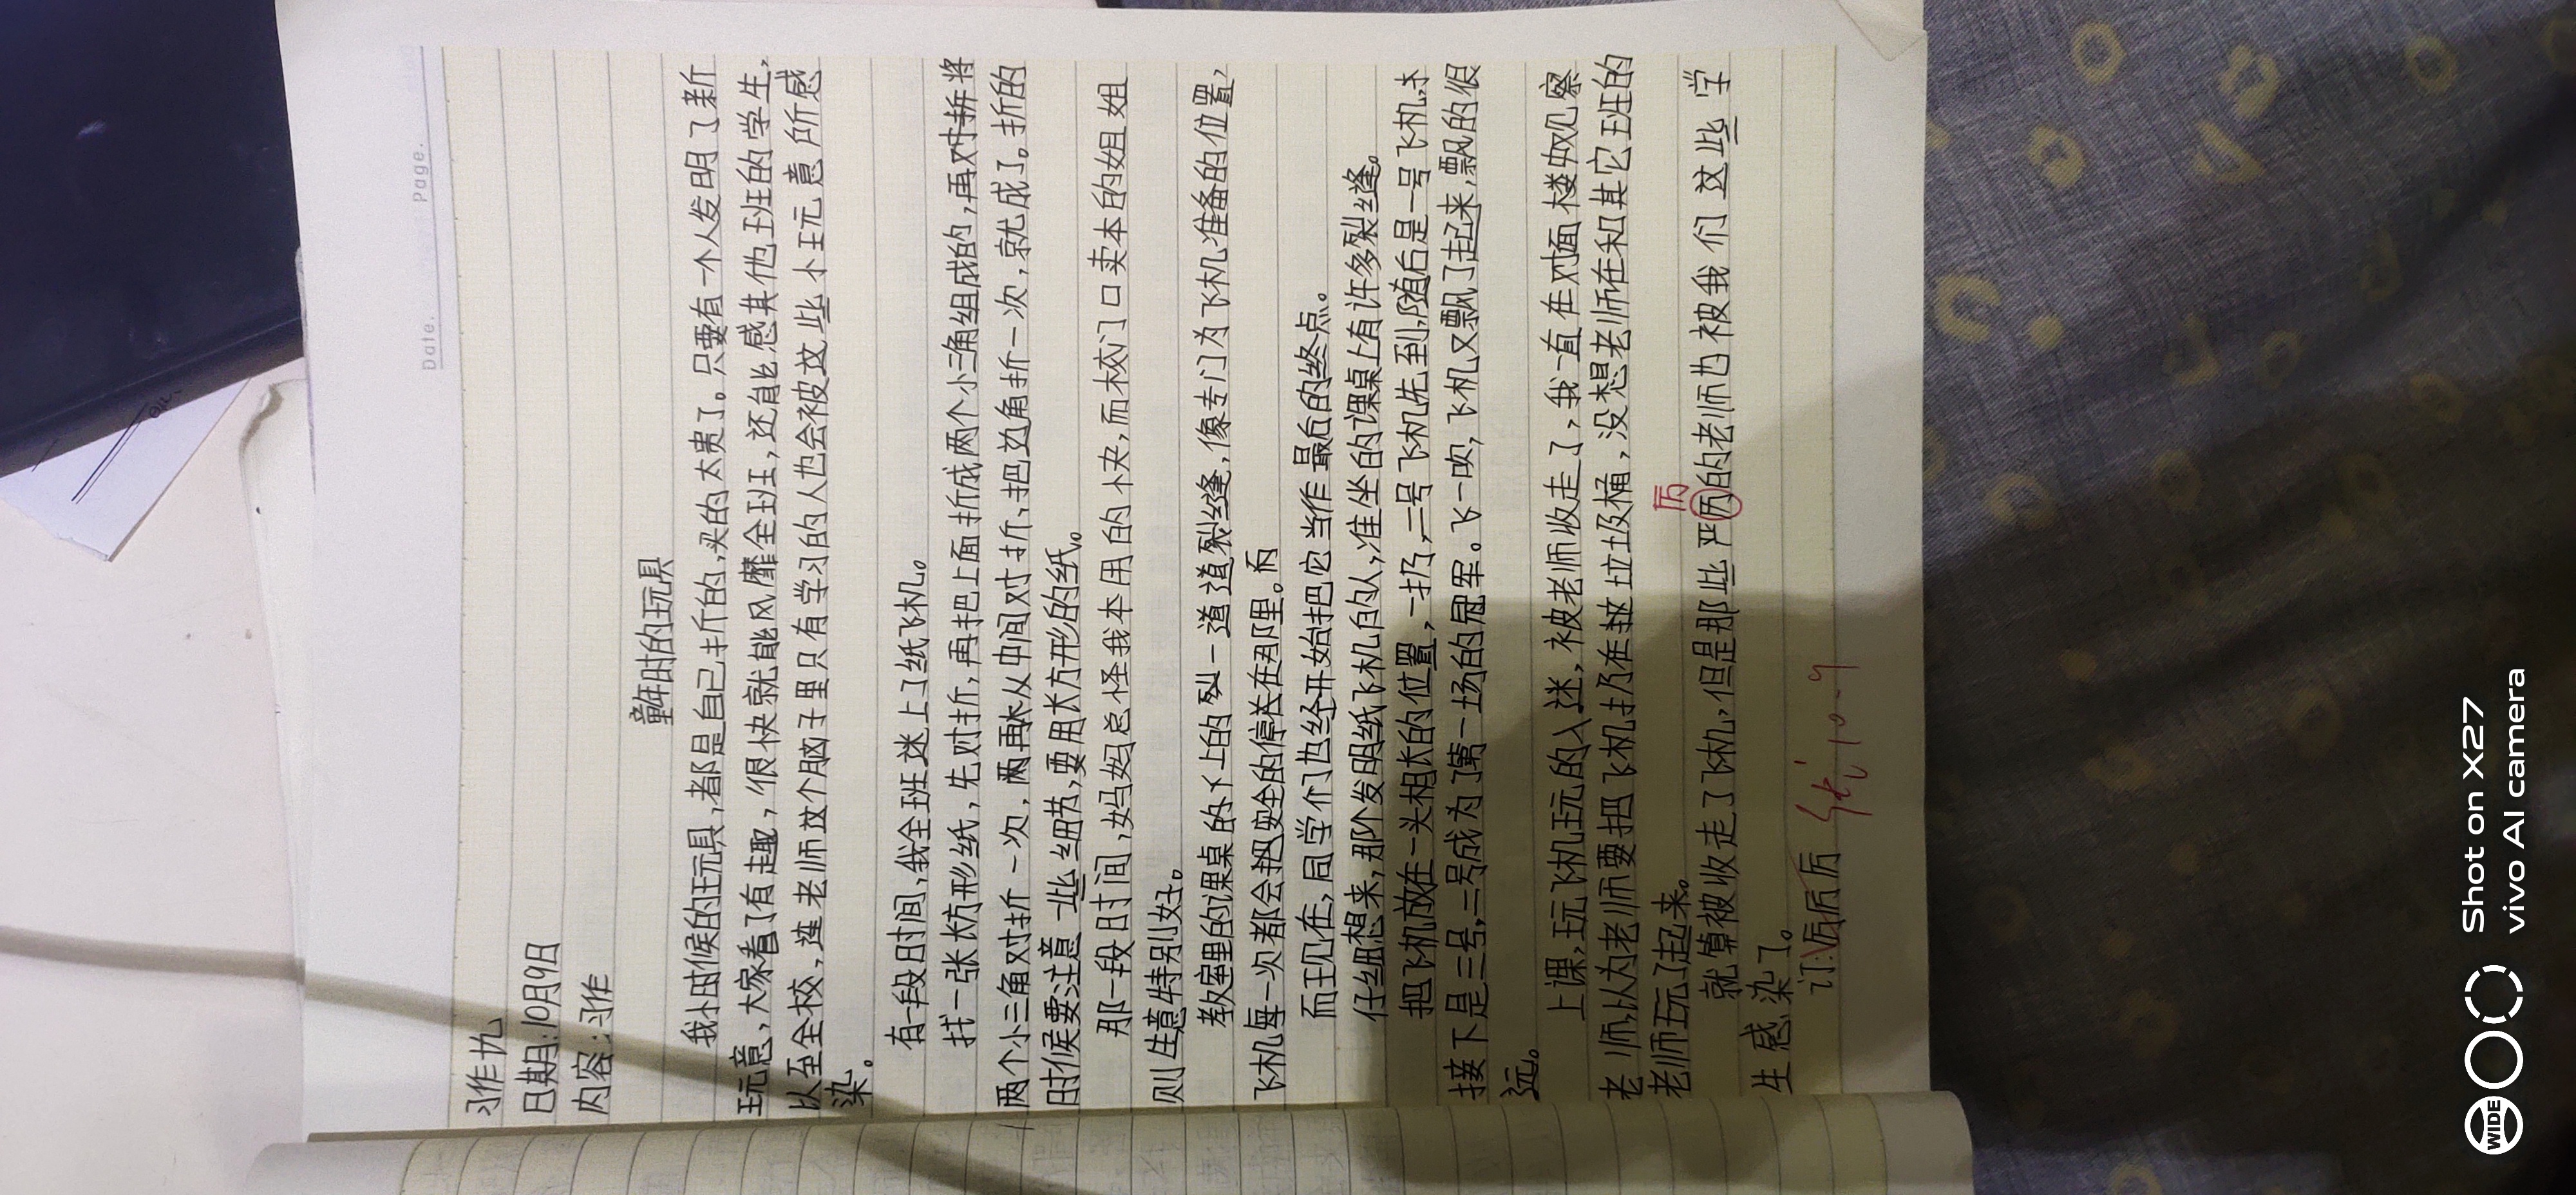 Date.    Page.
习作九
日期:10月9日
内容:习作
童年时的玩具
我小时候的玩具,都是自己折的,买的太贵了。只要有一个人发明了新
玩意,大家看了有趣,很快就能风靡全班,还能感其他班的学生,
以至全校,连老师这个脑子里只有学习的人也会被这些小玩意所感
染。
有一段时间,我全班迷上了纸飞机。
找一张长方形纸,先对折,再把上面折成两个小三角组成的,再对折将
两个小三角对折一次,两再从中间对折,把边角折一次,就成了。折的
时候要注意一些细节,要用长方形的纸。
那一段时间,妈妈总怪我本用的快,而校门口卖本的姐姐
则生意特别好。
教室里的课桌的上的一道道裂缝,像专门为飞机准备的位置,
飞机每一次都会把安全的停在那里。而
而现在,同学们也经开始把它当作最后的终点。
仔细想来,那个发明纸飞机的人,准坐的课桌上有许多裂缝。
把飞机放在一头相长的位置,一扔,二号飞机先到,随后是一号飞机,
接下是三号,二号成为了第一场的冠军。飞一吹,飞机又飘了起来,飘的很
远。
上课,玩飞机玩的入迷,被老师收走了,我一直在对面楼观察
老师,以为老师要把飞机扔在垃圾桶,没想老师在和其它班的
老师玩了起来。
厉
就算被收走了飞机,但是那些严厉的老师也被我们这些学
生感染了。
订:厉厉厉
10.9
Shot on X27
vivo AI camera
WIDE